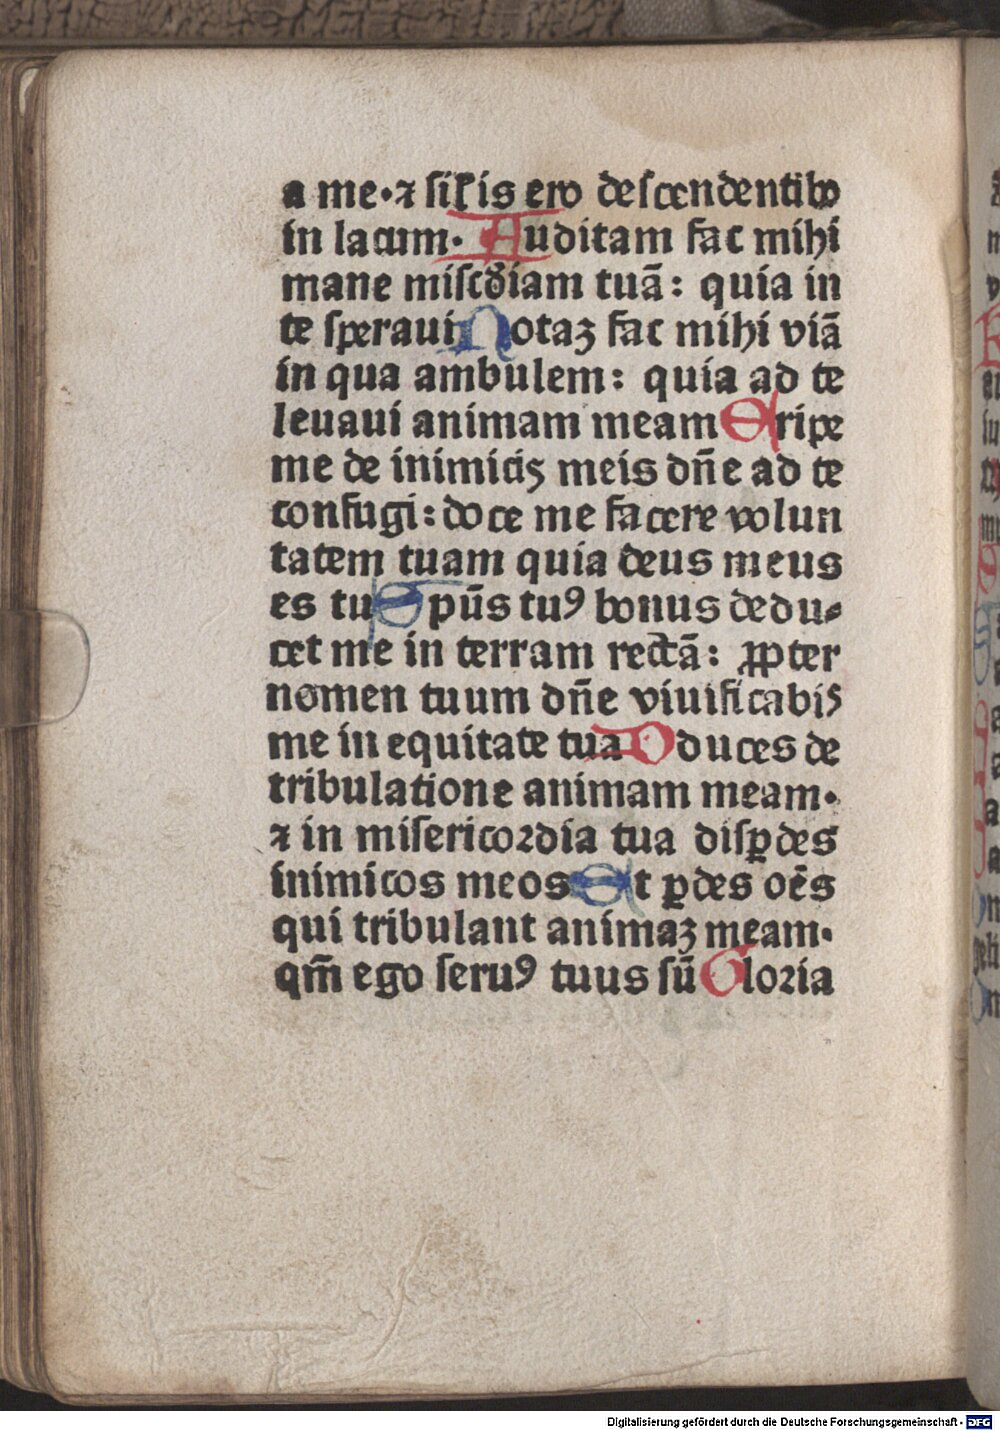 a me·⁊ ſil̃is ero deſcendentibꝰ
in lacum· Auditam fac mihi
mane miſcd̃iam tuã: quia in
te ſperaui Notaꝫ fac mihi viã
in qua ambulem: quia ad te
leuaui animam meam Eripe
me de inimicis meis dñe ad te
confugi: doce me facere volun
tatem tuam quia deus meus
es tu Spũs tuꝰ bonus dedu⸗
cet me in terram rectã: ꝓpter
nomen tuum dñe viuificabis
me in equitate tua Educes de
tribulatione animam meam·
⁊ in miſericoꝛdia tua diſꝑdes
inimicos meos Et ꝑdes oẽs
qui tribulant animaꝫ meam·
qm̃ ego ſeruꝰ tuus ſũ Gloꝛia
Digitalisierung gefördert durch die Deutsche Forschungsgemeinschaft - DFG